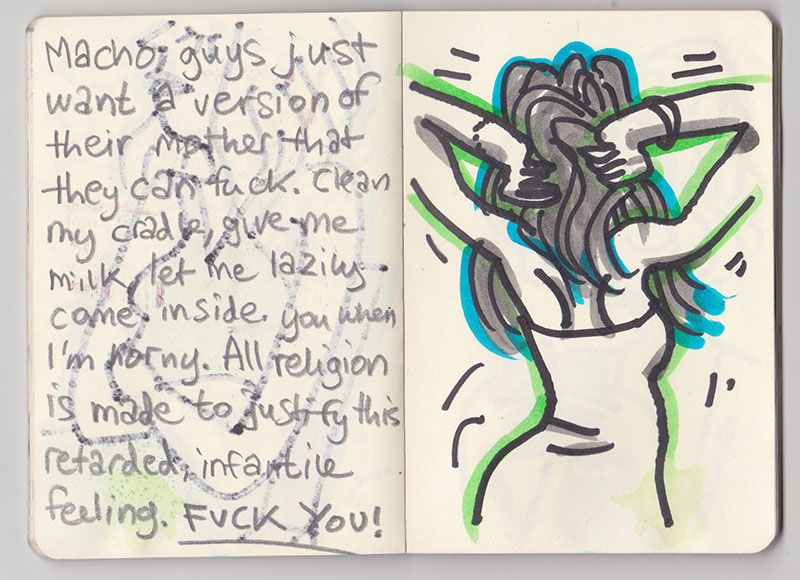 Macho guys just
want a version of
their mother that
they can fuck. Clean
my cradle, give me
milk, let me lazily
come inside you when
I'm horny. All religion
is made to justify this
retarded, infantile
feeling. FUCK YOU!